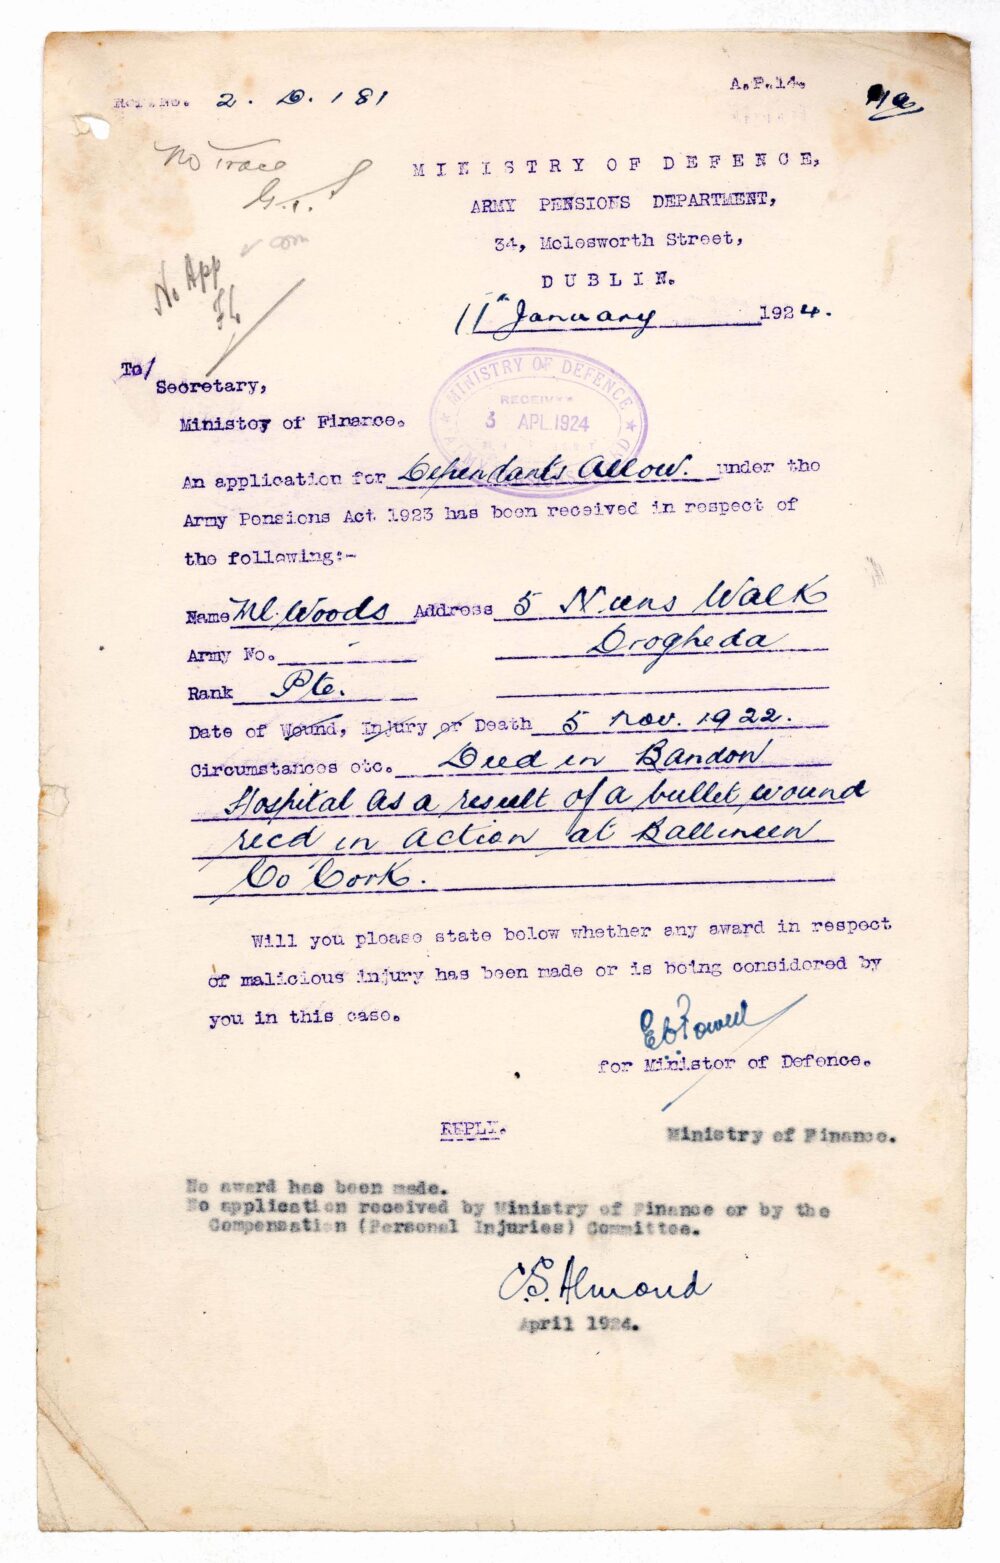 Ref.No. 2. D. 181
A.P.14.
No Trace
No App
MINISTRY OF DEFENCE,
ARMY PENSIONS DEPARTMENT,
34, Molesworth Street,
DUBLIN.
11th January 1924.
To/
Secretary,
Ministoy of Finance.
MINISTRY OF DEFENCE
RECEIVED
3 APL 1924
An application for Dependants Allow. under the
Army Pensions Act 1923 has been received in respect of
the following:-
Name Ml. Woods Address 5 Nuns Walk
Army No. - Drogheda
Rank Pte.
Date of Wound, Injury or Death 5 Nov. 1922.
Circumstances etc. Died in Bandon
Hospital as a result of a bullet wound
recd in action at Ballineen
Co Cork.
Will you please state below whether any award in respect
of malicious injury has been made or is being considered by
you in this case.
E Powell
for Minister of Defence.
REPLY.
Ministry of Finance.
No award has been made.
No application received by Ministry of Finance or by the
Compensation (Personal Injuries) Committee.
C.S. Almond
April 1924.